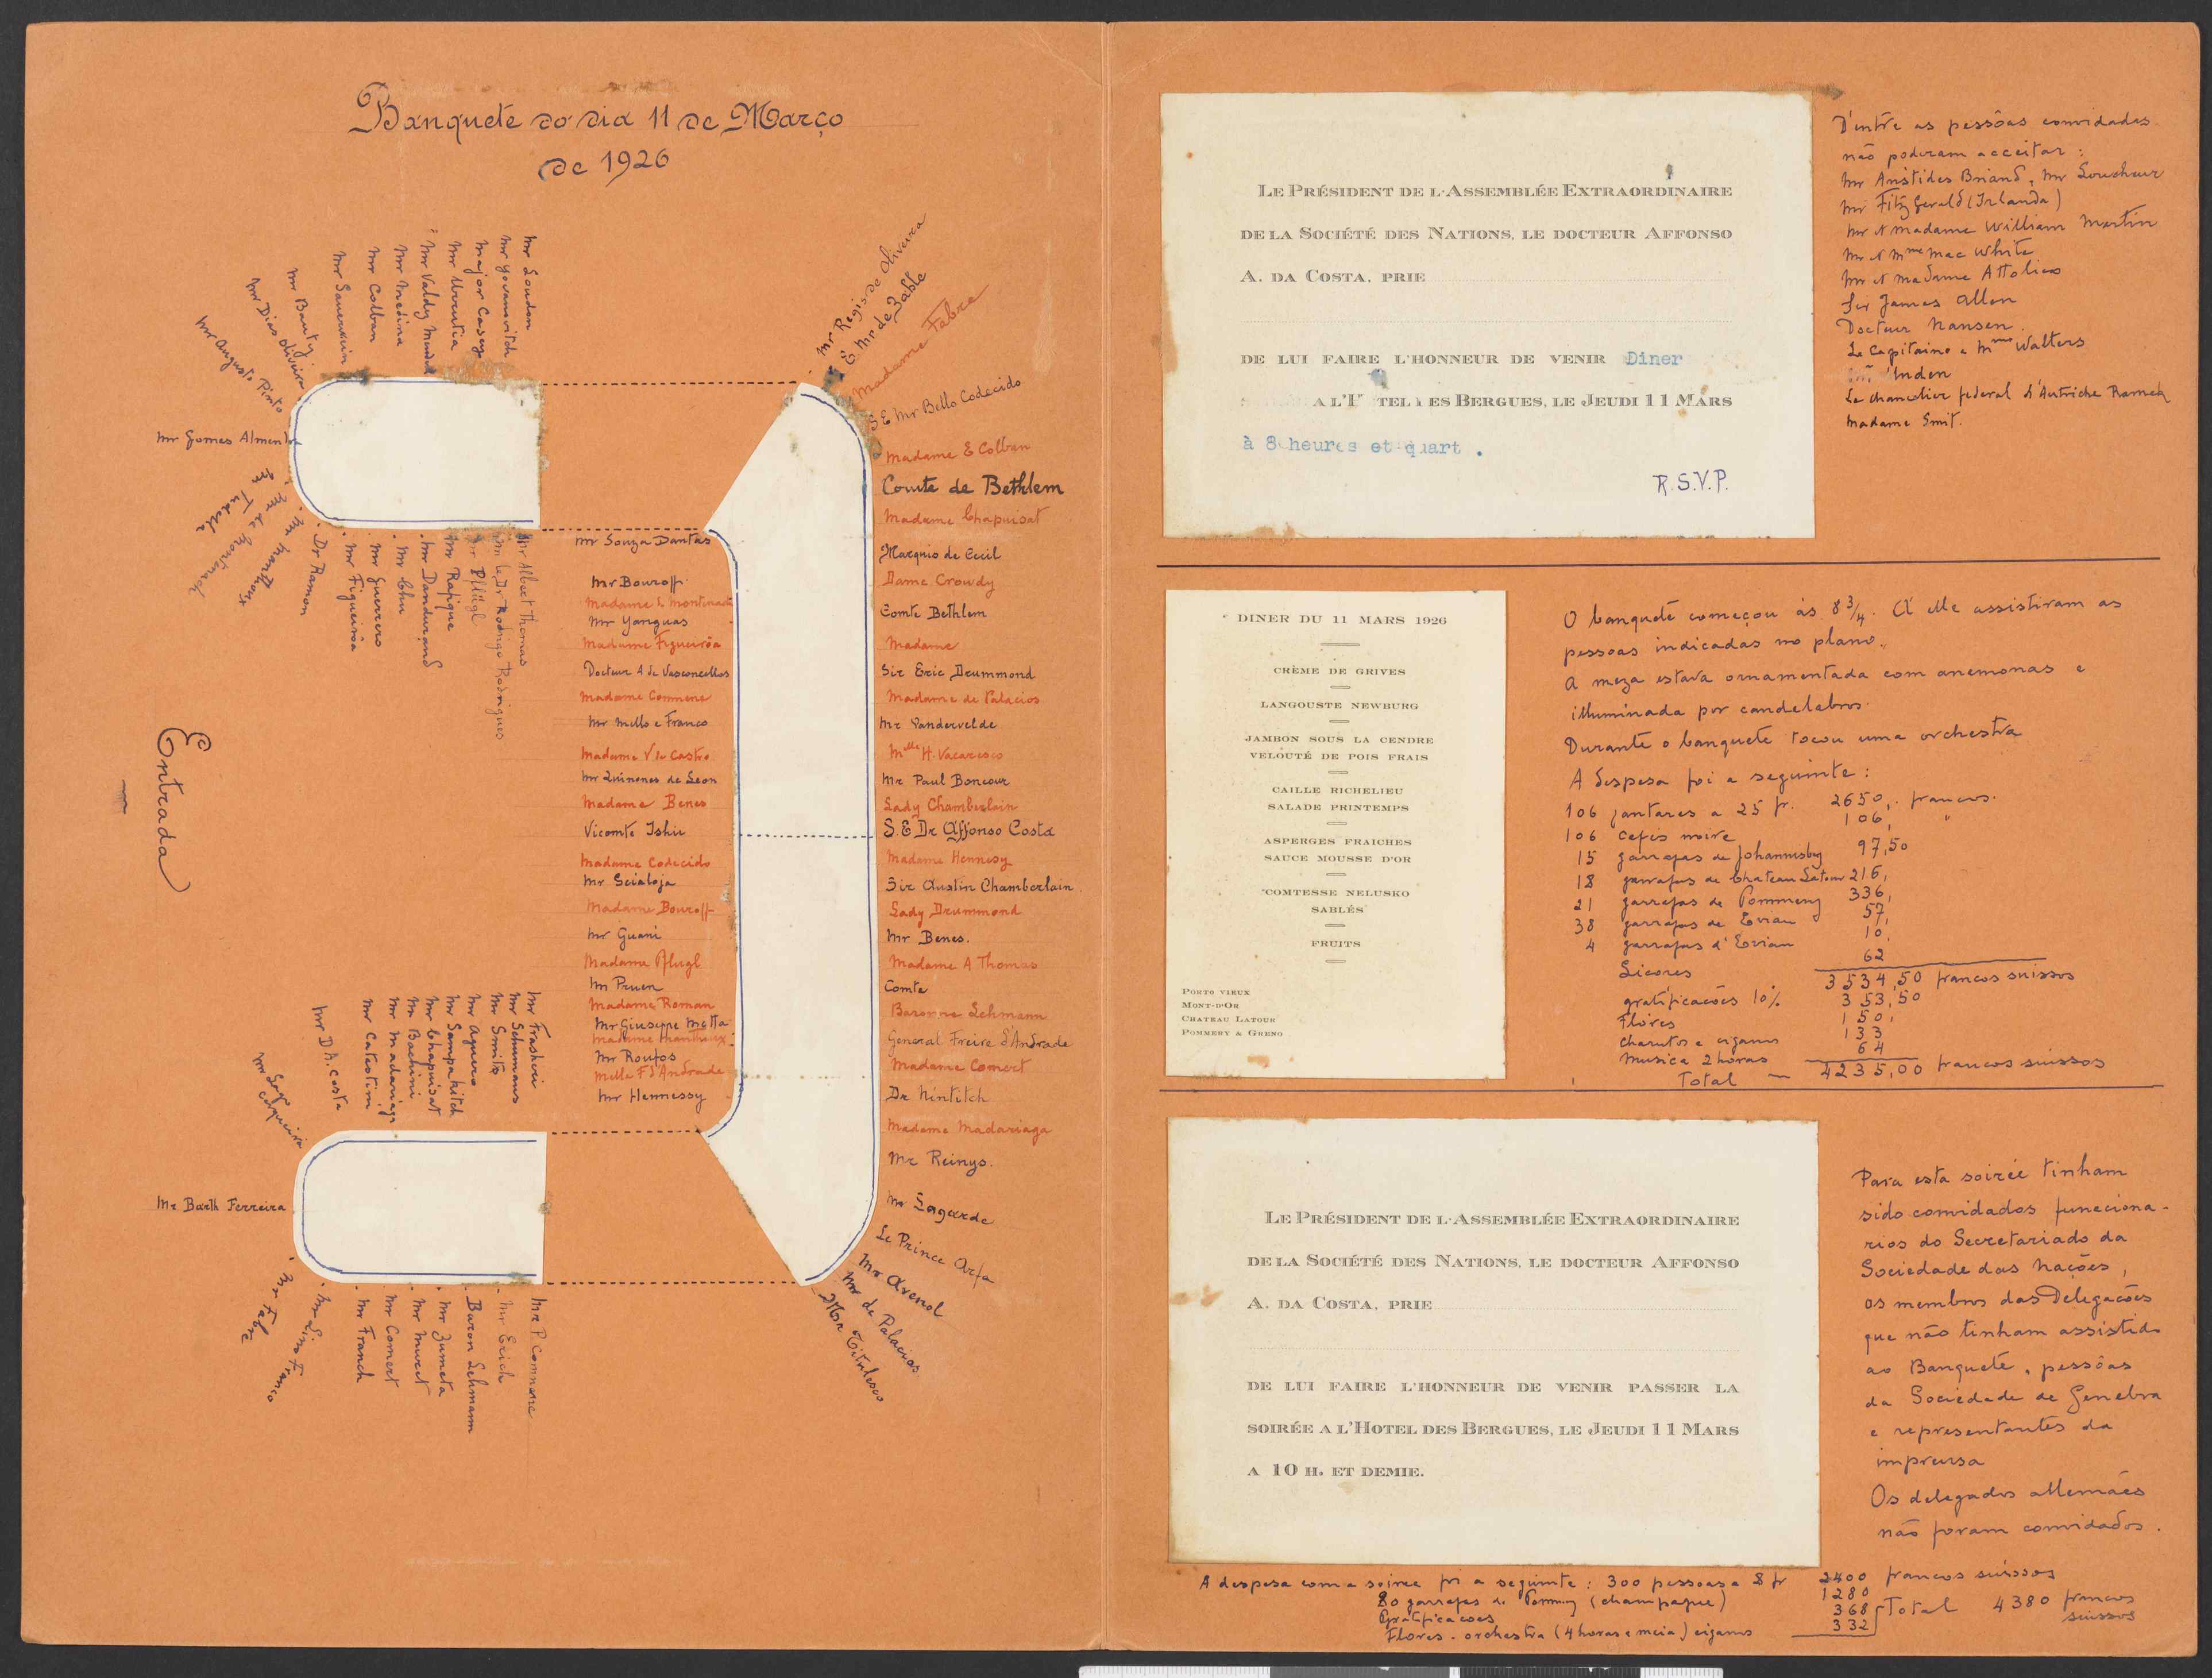 Banquete do dia 11 de Março
de 1926
Mr Loudon
Mr Yovanovitch
Major Casey
Mr Urrutia
Mr Valdy Mendel
Mr Medina
Mr Colban
Mr Sauerwein
Mr Bauty
Mr Dias Oliveira
Mr Augusto Pinto
Mr Gomes Almen
de Montenach
Dr Ramon
Mr Figueirôa
Mr Guerrero
Mr Chu
Mr Dandurand
Mr Rafique
Mr Pflügl
Mr le Dr Rodrigo Rodrigues
Mr Albert Thomas
Mr Regis de Oliveira
E Mr de Zahle
Madame Fabra
S E Mr Bello Codecido
Madame E Colban
Comte de Bethlem
Madame Chapuisat
Marquis de Cecil
Dame Crowdy
Comte Bethlem
Madame
Sir Eric Drummond
Madame de Palacios
Mr Vandervelde
Melle H. Vacaresco
Mr Paul Boncour
Lady Chamberlain
S. E Dr Affonso Costa
Madame Hennesy
Sir Austin Chamberlain
Lady Drummond
Mr Benes.
Madame A Thomas
Comte
Baronne Lehmann
General Freire d'Andrade
Madame Comert
Dr Nintitch
Madame Madariaga
Mr Reinys.
Mr Lagarde
Le Prince Arfa
Mr Avenol
Mr de Palacios
Mr Titulesco
Mr Souza Dantas
Mr Bouroff
Madame de Montenach
Mr Yanguas
Madame Figueirôa
Docteur A de Vasconcellos
Madame Comnene
Mr Mello e Franco
Madame V de Castro
Mr Quinones de Leon
Madame Benes
Vicomte Ishii
Madame Codecido
Mr Scialoja
Madame Bouroff
Mr Guani
Madame Pflugl
Mr Pruen
Madame Roman
Mr Giuseppe Motta
Mr Roufos
Melle F d'Andrade
Mr Hennessy
Entrada
Mr Frasheri
Mr Schumans
Mr Smits
Mr Aguero
Mr Sampahitch
Mr Chapuisat
Mr Bachini
Mr Madariaga
Mr Catastini
Mr D A. Costa
Cerqueira
Mr Barth Ferreira
Mr Fabre
Mr Lino Franco
Mr Franch
Mr Comert
Mr Muret
Mr Zumeta
Baron Lehmann
Mr Erich
Mr P. Comnene
Le Président de l'Assemblée Extraordinaire
de la Société des Nations, le Docteur Affonso
A. da Costa, prie
de lui faire l'honneur de venir Diner
a l'H tel es Bergues, le Jeudi 11 Mars
à 8 heures et quart .
R.S.V.P.
D'entre as pessôas convidadas
não poderam acceitar :
Mr Aristides Briand, Mr Loucheur
Mr Fitz Gerald (Irlanda)
Mr et Madame William Martin
Mr et Mme Mac White
Mr et Madame Attolico
Sir James Allen
Docteur Nansen
Le Capitaine e Mme Walters
Unden
Le chancelier federal d'Autriche Ramek
Madame Smit.
DINER DU 11 MARS 1926
CRÈME DE GRIVES
LANGOUSTE NEWBURG
JAMBON SOUS LA CENDRE
VELOUTÉ DE POIS FRAIS
CAILLE RICHELIEU
SALADE PRINTEMPS
ASPERGES FRAICHES
SAUCE MOUSSE D'OR
COMTESSE NELUSKO
SABLÉS
FRUITS
Porto vieux
Mont-d'Or
Chateau Latour
Pommery & Greno
O banquete começou ás 8 3/4. A' elle assistiram as
pessoas indicadas no plano.
A meza estava ornamentada com anemonas e
illuminada por candelabros.
Durante o banquete tocou uma orchestra
A despesa foi a seguinte :
106 jantares a 25 fr. 2650, francos.
106 cafés noire 106, "
15 garrafas de Johannisberg 97,50
18 garrafas de Chateau Latour 216,
21 garrafas de Pommery 336,
38 garrafas de Evian 57,
4 garrafas d'Evian 10,
Licores 62
3534,50 francos suissos
gratificacões 10% 353,50
Flôres 150,
Charutos e cigarros 133
Musica 2 horas 64
Total — 4235,00 francos suissos
Le Président de l'Assemblée Extraordinaire
de la Société des Nations, le Docteur Affonso
A. da Costa, prie
de lui faire l'honneur de venir passer la
soirée a l'Hotel des Bergues, le Jeudi 11 Mars
a 10 h. et demie.
Para esta soirée tinham
sido convidados funcciona-
rios do Secretariado da
Sociedade das Nações,
os membros das Delegações
que não tinham assistido
ao Banquete, pessôas
da Sociedade de Genebra
e representantes da
imprensa
Os delegados allemães
não foram convidados.
A despesa com a soirea foi a seguinte : 300 pessoas a 8 fr 2400 francos suissos
80 garrafas de Pommery (champagne) 1280
Gratificacoes 368
Flores - orchestra (4 horas e meia) cigarros 332
Total 4380 francos
suissos